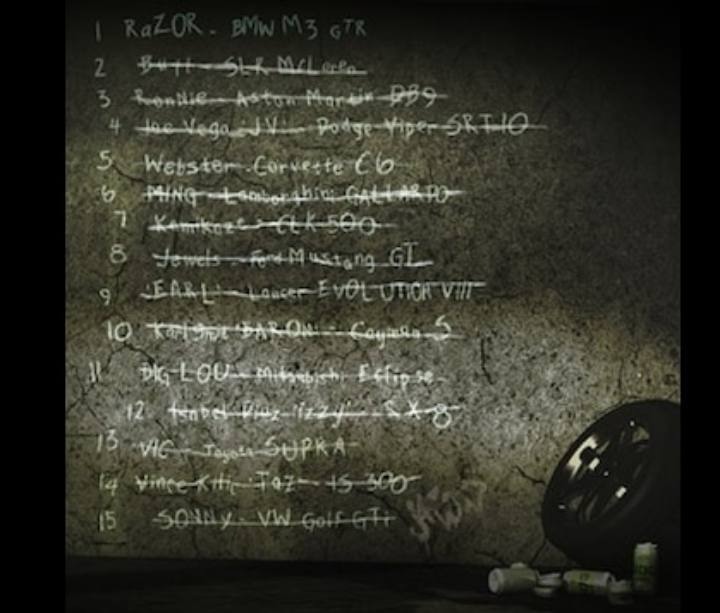 1 RaZOR - BMW M3 GTR
2 Bull - SLR McLaren
3 RonNie - Aston Martin DB9
4 Joe Vega 'JV' - Dodge Viper SRT10
5 Webster - Corvette C6
6 MING - Lamborghini GALLARDO
7 Kamikaze - CLK 500
8 Jewels - Ford Mustang GT
9 'EARL' - Lancer EVOLUTION VIII
10 Karl Smit 'BARON' - Cayman S
11 BIG LOU - Mitsubishi Eclipse
12 Isabel Diaz 'izzy' - RX 8
13 VIC - Toyota SUPRA
14 Vince Kilic 'Taz' - IS 300
15 SONNY - VW Golf GTI